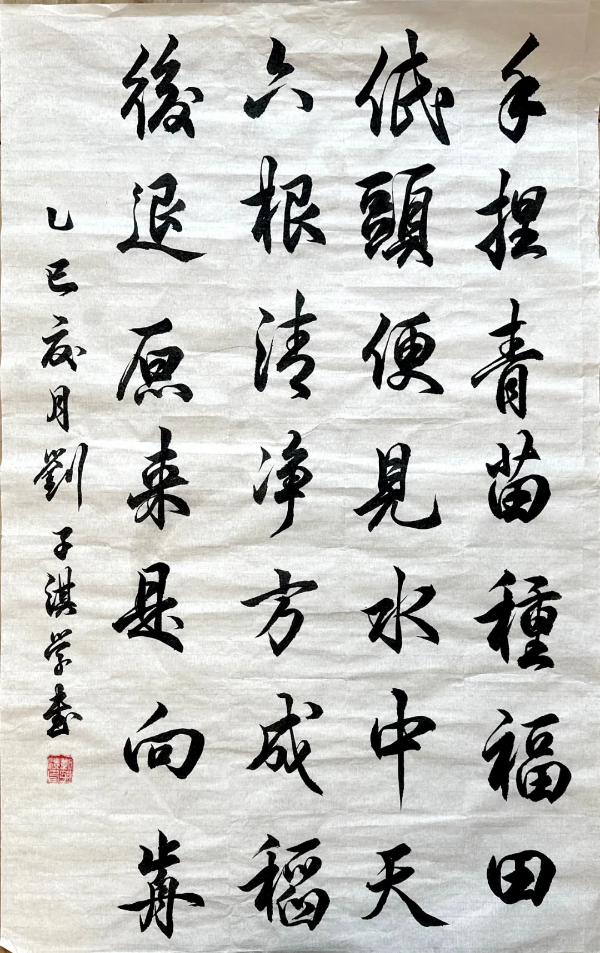 手捏青苗種福田
低頭便見水中天
六根清净方成稻
後退原来是向歬
乙巳夏月劉子淇学書